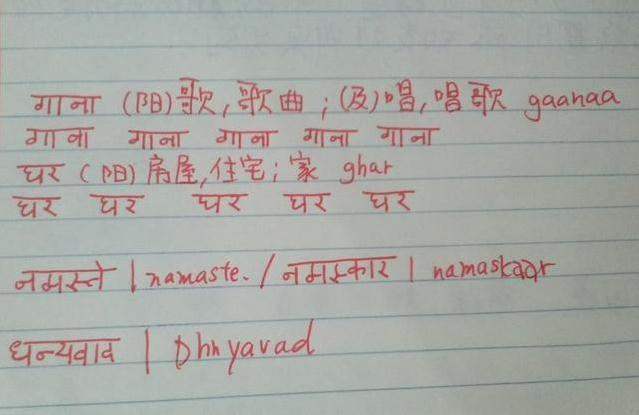 गाना (阳)歌,歌曲;(及)唱,唱歌 gaanaa
गाना गाना गाना गाना गाना
घर (阳)房屋,住宅;家 ghar
घर घर घर घर घर
नमस्ते | namaste. / नमस्कार | namaskaar
धन्यवाव | Dhnyavad